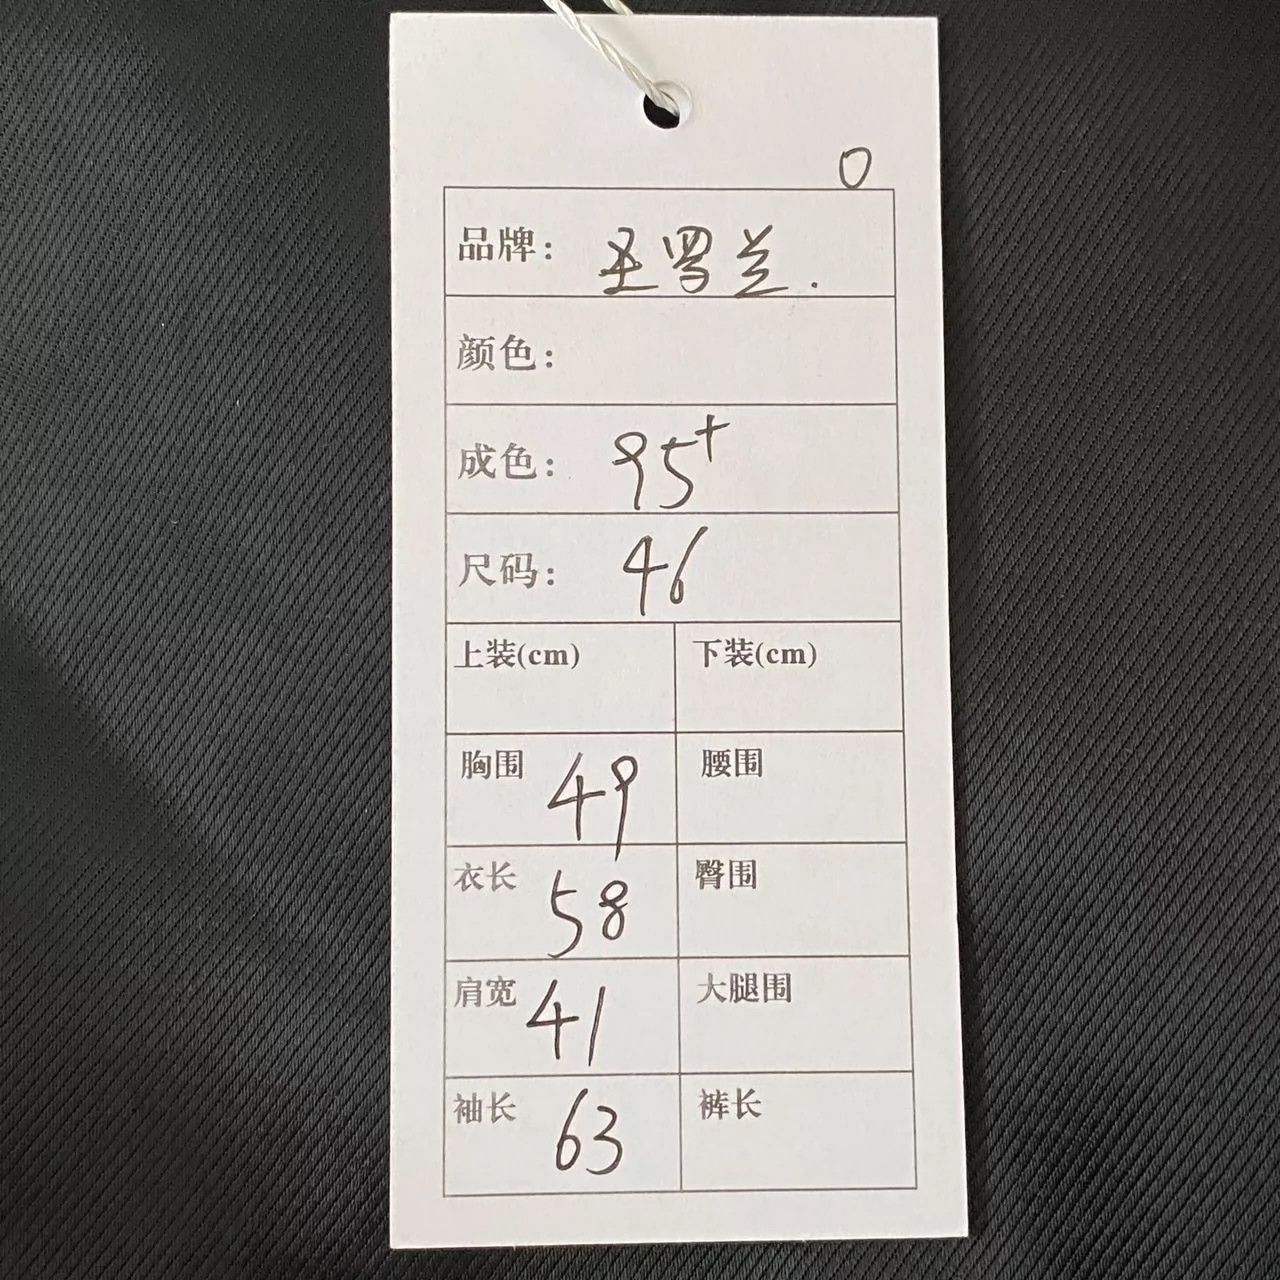 0
品牌: 圣罗兰.
颜色:
成色: 95+
尺码: 46
上装(cm) 下装(cm)
胸围 49 腰围
衣长 58 臀围
肩宽 41 大腿围
袖长 63 裤长